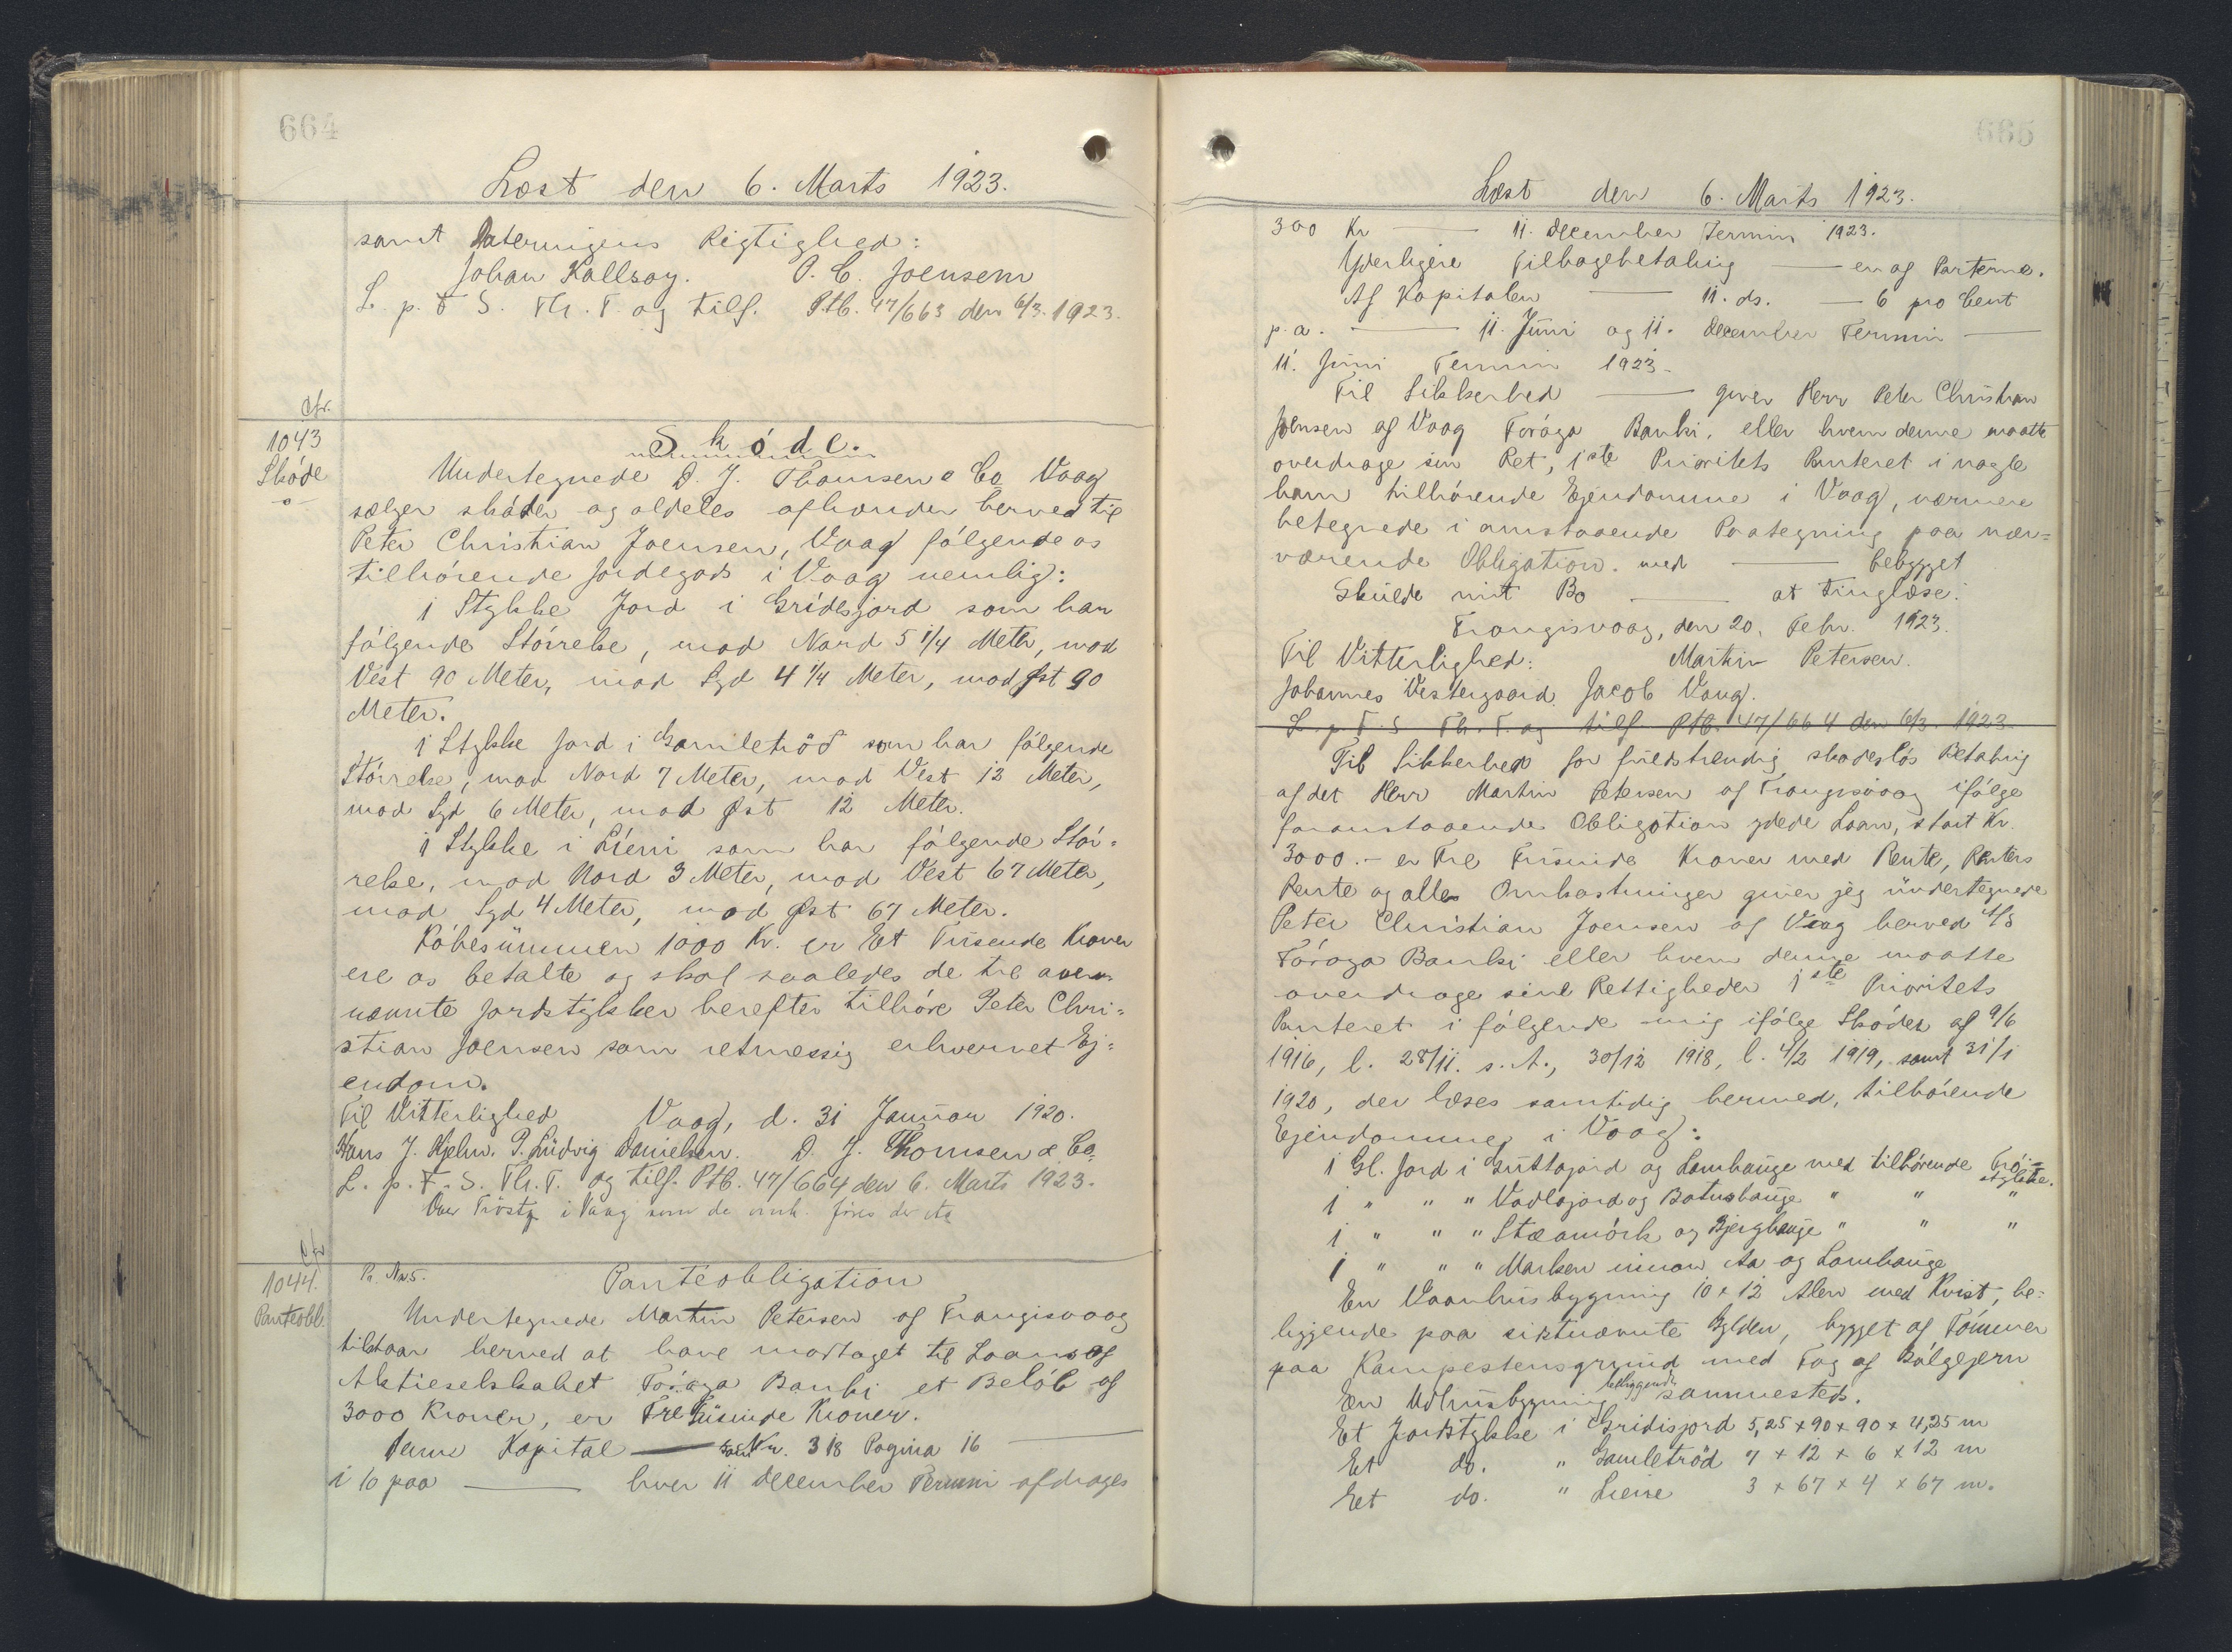 664
Læst den 6. Marts 1923.
samt Dateringens Rigtighed:
Johan Kallsoy. P. C. Joensen
L. p. F. S. Th. T. og tilf. Ptb. 47/663 den 6/3. 1923.
Cfr.
1043
Skóde
Skóde.
Undertegnede D. J. Thomsen & Co Vaag
sælger skóder og aldeles afhænder herved til
Peter Christian Joensen, Vaag fólgende os
tilhórende Jordegods i Vaag nemlig:
1 Stykke Jord i Grídisjord som har
fólgende Stórrelse, mod Nord 5 1/4 Meter, mod
Vest 90 Meter, mod Syd 4 1/4 Meter, mod Øst 90
Meter.
1 Stykke Jord i Gamletröð som har fólgende
Stórrelse, mod Nord 7 Meter, mod Vest 12 Meter,
mod Syd 6 Meter, mod Øst 12 Meter.
1 Stykke i Líeni som har fólgende Stór-
relse, mod Nord 3 Meter, mod Vest 67 Meter,
mod Syd 4 Meter, mod Øst 67 Meter.
Kóbesummen 1000 Kr. er Et Tusende Kroner
ere os betalte og skal saaledes de tre oven-
nævnte Jordstykker herefter tilhóre Peter Chri-
stian Joensen som retmessig erhvervet Ej-
endom.
Til Vitterlighed Vaag, d. 31 Januar 1920.
Hans J. Hjelm. P. Ludvig Danielsen. D. J. Thomsen & Co.
L. p. F. S. Th. T. og tilf. Ptb. 47/664 den 6. Marts 1923.
i Vaag som de
Cfr
1044.
Panteobl.
Pr. No 5.
Panteobligation
Undertegnede Martin Petersen af Trangisvaag
tilstaar herved at have modtaget til Laans af
Aktieselskabet Fóroya Banki et Belób af
3000 Kroner, er Tre Tusinde Kroner.
Denne Kapital — Nr. 318 Pagina 16 —
i 10 paa — hver 11 December Termin afdrages
665
Læst den 6. Marts 1923.
300 Kr — 11. December Termin 1923.
Yderligere Tilbagebetaling — en af Parterne.
Af Kapitalen — 11. ds. — 6 pro Cent
p. a. — 11. Juni og 11. December Termin —
11. Juni Termin 1923.
Til Sikkerhed — giver Herr Peter Christian
Joensen af Vaag Fóroya Banki, eller hvem denne maatte
overdrage sin Ret, 1ste Prioritets Panteret i nogle
ham tilhórende Ejendomme i Vaag, nærmere
betegnede i omstaaende Paategning paa nær-
værende Obligation. med — bebygget
Skulde mit Bo — at tinglæse.
Trangisvaag, den 20. Febr. 1923.
Til Vitterlighed: Martin Petersen.
Johannes Vestergaard. Jacob Vaag.
L. p. F. S. Th. T. og tilf. Ptb. 47/664 den 6/3. 1923
Til Sikkerhed for fuldstændig skadeslós Betaling
af det Herr Martin Petersen af Trangisvaag ifólge
foranstaaende Obligation ydede Laan, stort Kr.
3000.- er Tre Tusinde Kroner med Rente, Renters
Rente og alle Omkostninger giver jeg undertegnede
Peter Christian Joensen af Vaag herved A/S
Fóroya Banki eller hvem denne maatte
overdrage sine Rettigheder 1ste Prioritets
Panteret i fólgende mig ifólge Skóder af 9/6
1916, l. 28/11. s. A., 30/12 1918, l. 4/2 1919, samt 31/1
1920, der læses samtidig hermed, tilhórende
Ejendomme i Vaag:
1 Gl. Jord i Guttajord og Lambauge med tilhórende Tró-
stykke.
1 " " " Vadlajord og Botushauge " " "
1 " " " Stæamórk og Bjerghauge " " "
1 " " " Marken innan Aa og Lambauge
En Vaanhusbygning 10 x 12 Alen med Kvist, be-
liggende paa sistnævnte Gylden, bygget af Tómmer
paa Kampestensgrund med Tag af Bólgejern
En Udhusbygning beliggende sammesteds.
Et Jordstykke i Gridisjord 5,25 x 90 x 90 x 4,25 m
Et do. " Gamletröd 7 x 12 x 6 x 12 m
Et do. " Lieni 3 x 67 x 4 x 67 m.